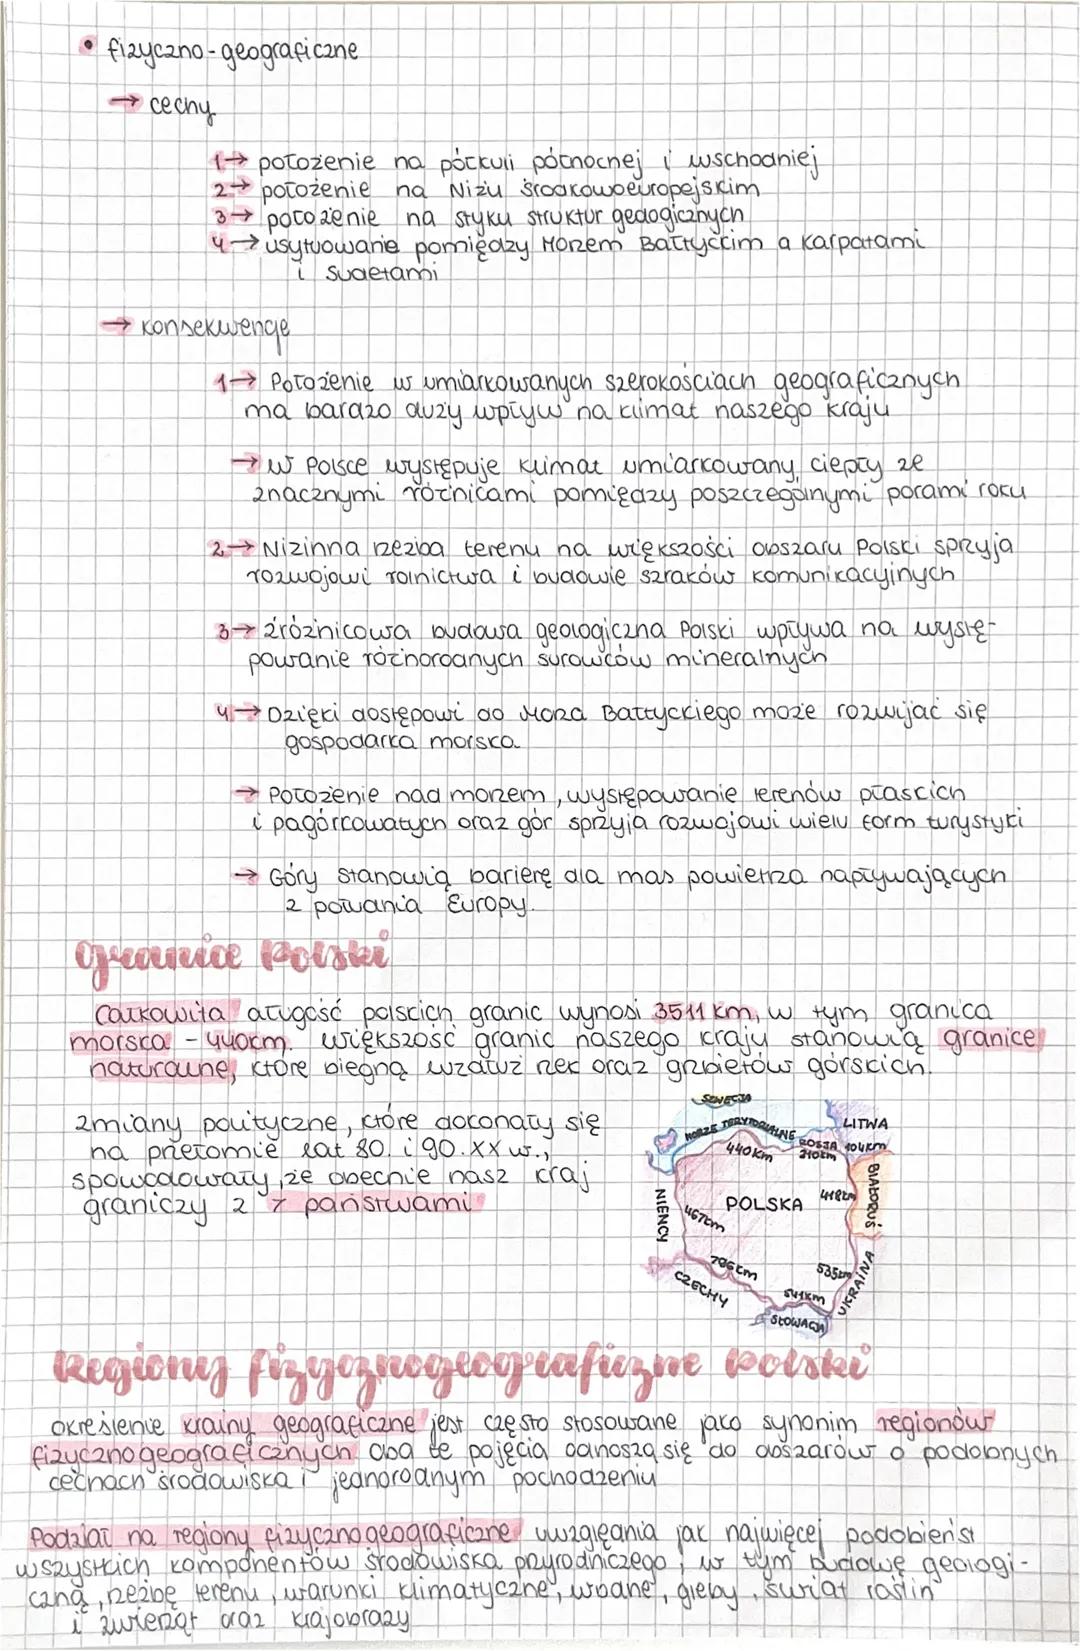 • fizyczno-geograficzne
→ cechy
1→ położenie na półkuli północnej i wschodniej
2→ położenie na Niżu Środkowoeuropejskim
3→ położenie na styku struktur geologicznych
4→ usytuowanie pomiędzy Morzem Bałtyckim a Karpatami
i Sudetami
→ konsekwencje
1→ Położenie w umiarkowanych szerokościach geograficznych
ma bardzo duży wpływ na klimat naszego kraju
→ W Polsce występuje klimat umiarkowany ciepły ze
znacznymi różnicami pomiędzy poszczególnymi porami roku
2→ Nizinna rzeźba terenu na większości obszaru Polski sprzyja
rozwojowi rolnictwa i budowie szlaków komunikacyjnych
3→ zróżnicowa budowa geologiczna Polski wpływa na wystę-
powanie różnorodnych surowców mineralnych
4→ Dzięki dostępowi do Morza Bałtyckiego może rozwijać się
gospodarka morska
→ Położenie nad morzem, występowanie terenów płaskich
i pagórkowatych oraz gór sprzyja rozwojowi wielu form turystyki
→ Góry stanowią barierę dla mas powietrza napływających
z południa Europy.
Granice Polski
Całkowita długość polskich granic wynosi 3511 km, w tym granica
morska - 440km. większość granic naszego kraju stanowią granice
naturalne, które biegną wzdłuż rzek oraz grzbietów górskich.
zmiany polityczne, które dokonały się
na przełomie lat 80. i 90. XX w.,
spowodowały, że obecnie nasz kraj
graniczy z 7 państwami
SZWECJA
MORZE TERYTORIALNE
LITWA
440 km
ROSJA
210km
104km
BIAŁORUŚ
418km
POLSKA
NIEMCY
467km
796km
CZECHY
535km
UKRAINA
541km
SŁOWACJA
Regiony fizycznogeograficzne Polski
określenie krainy geograficzne jest często stosowane jako synonim regionów
fizycznogeograficznych oba te pojęcia odnoszą się do obszarów o podobnych
cechach środowiska i jednorodnym pochodzeniu
Podział na regiony fizycznogeograficzne uwzględnia jak najwięcej podobieńst
wszystkich komponentów środowiska przyrodniczego, w tym budowę geologi-
czną, rzeźbę terenu, warunki klimatyczne, wodne, gleby, świat roślin
i zwierząt oraz krajobrazy